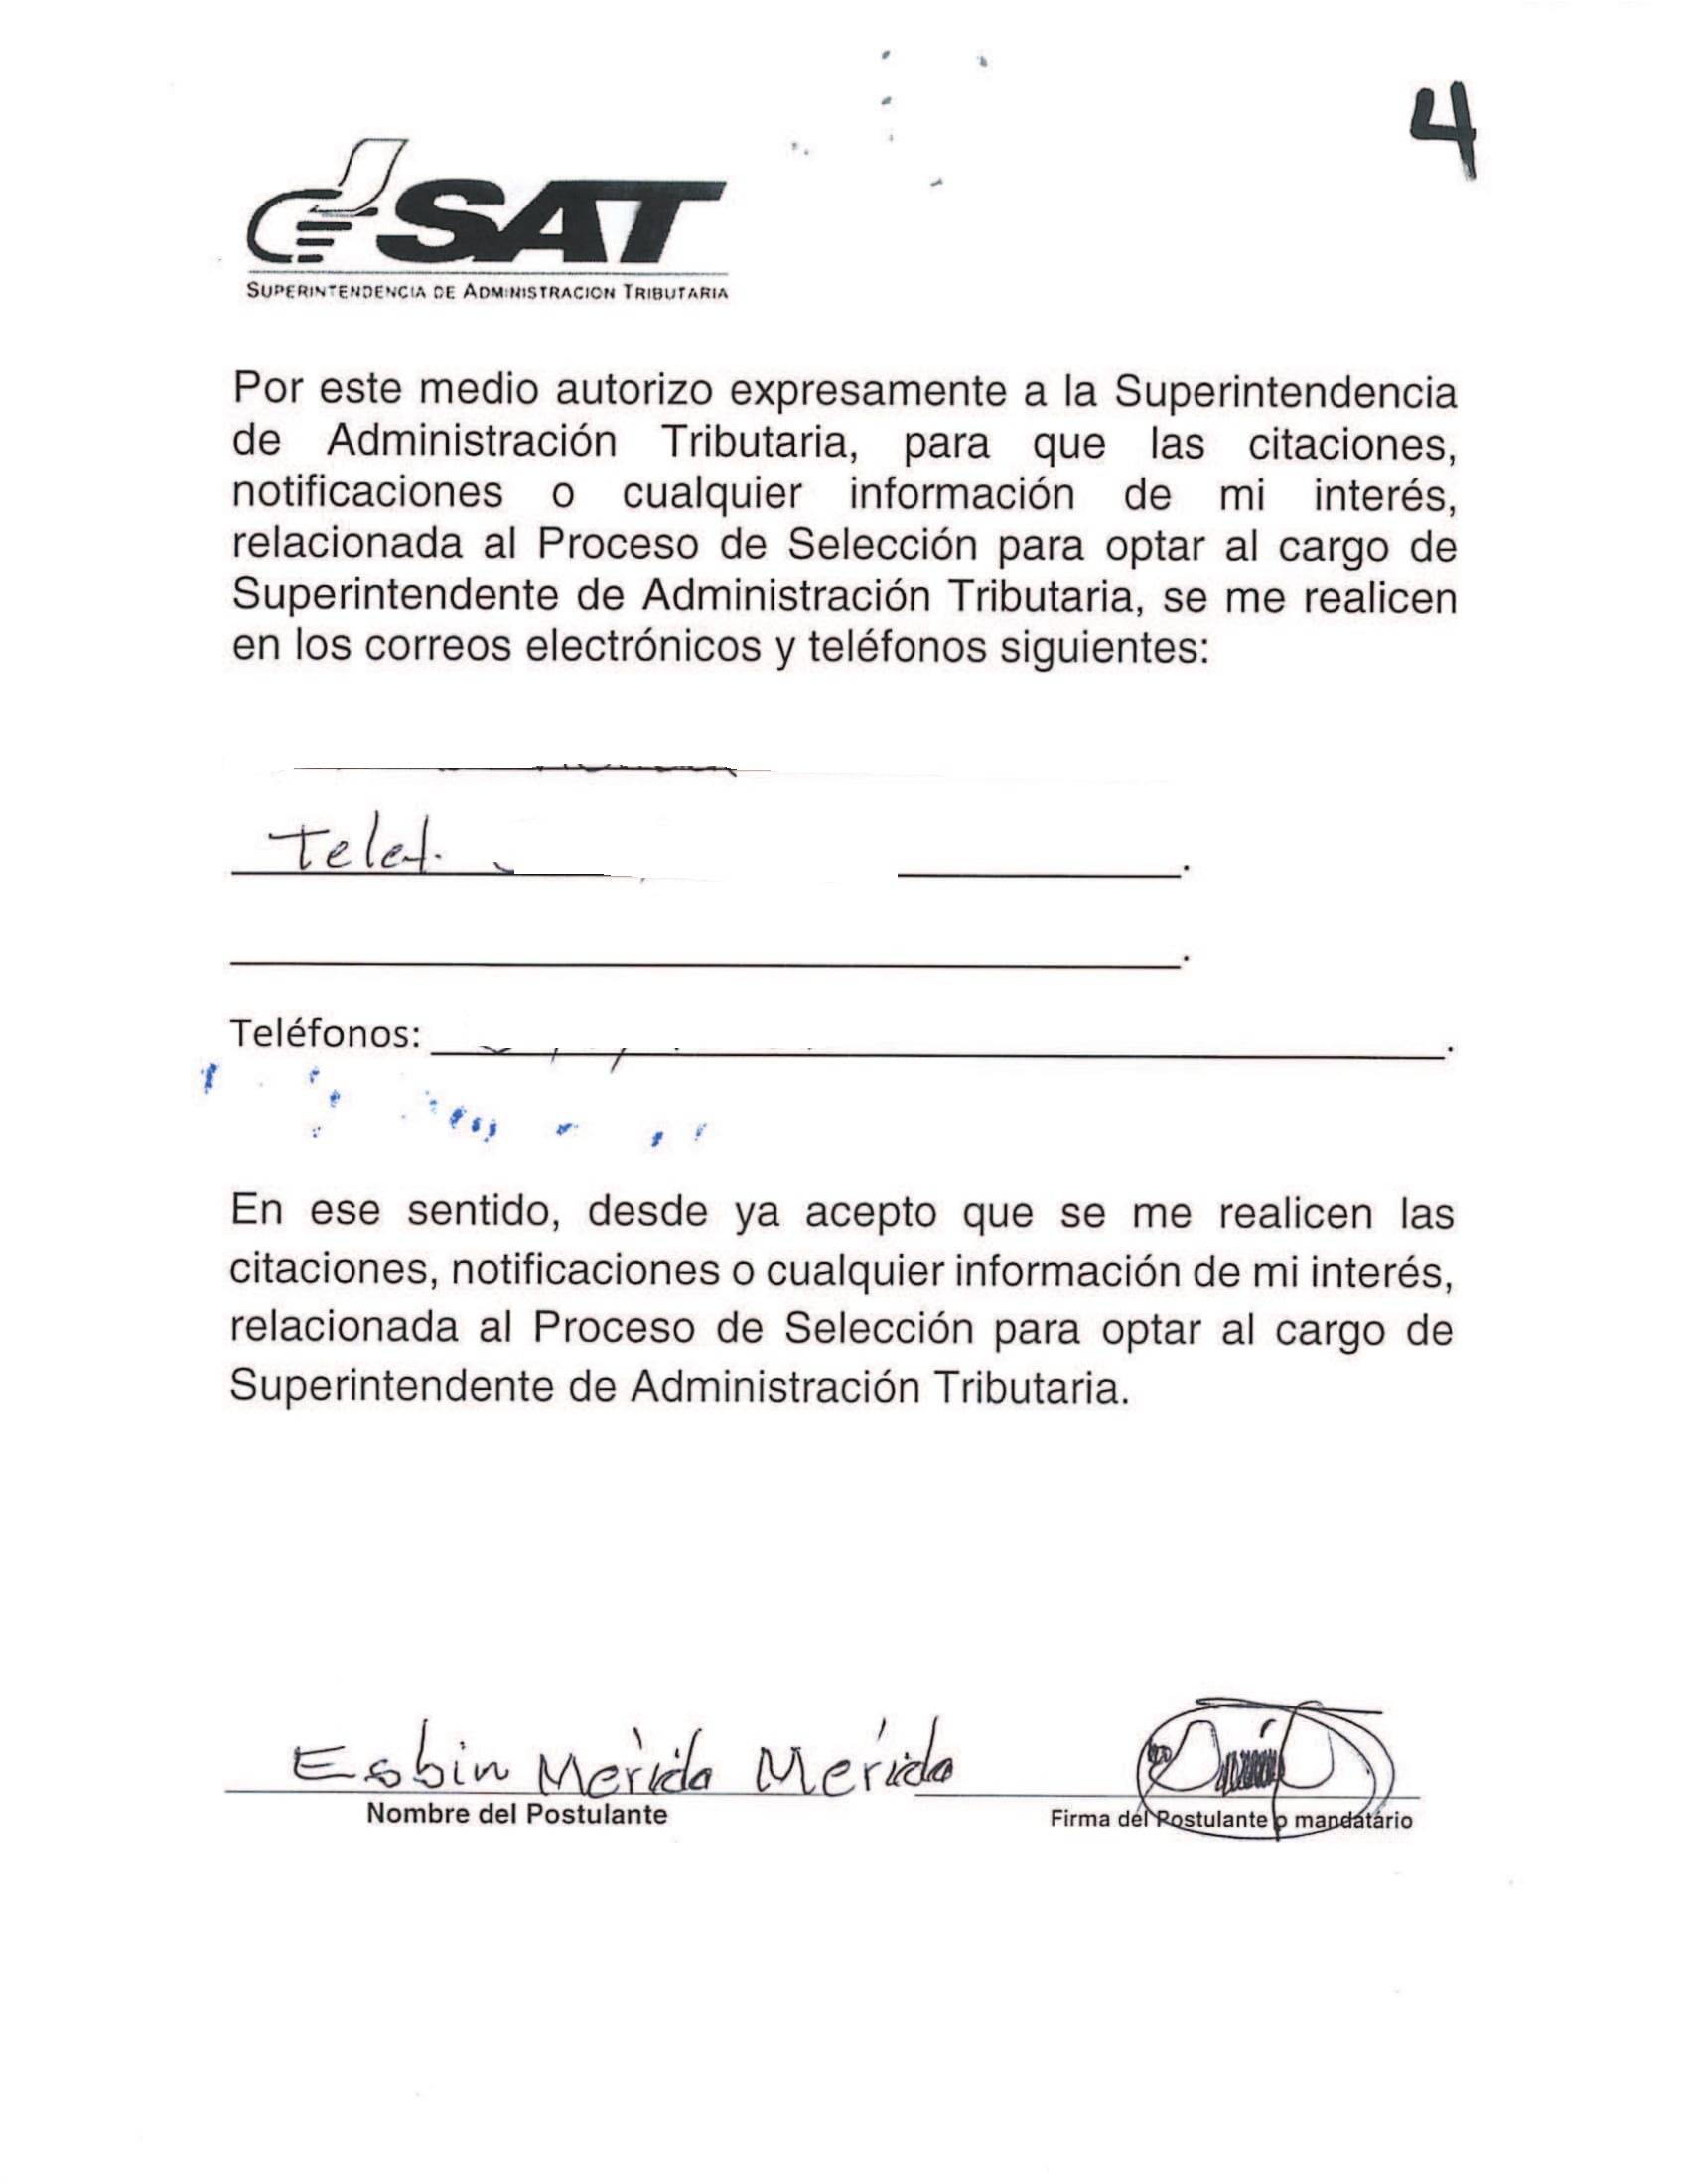 4
SAT
SUPERINTENDENCIA DE ADMINISTRACION TRIBUTARIA
Por este medio autorizo expresamente a la Superintendencia
de Administración Tributaria, para que las citaciones,
notificaciones o cualquier información de mi interés,
relacionada al Proceso de Selección para optar al cargo de
Superintendente de Administración Tributaria, se me realicen
en los correos electrónicos y teléfonos siguientes:
Telef.
Teléfonos:
En ese sentido, desde ya acepto que se me realicen las
citaciones, notificaciones o cualquier información de mi interés,
relacionada al Proceso de Selección para optar al cargo de
Superintendente de Administración Tributaria.
Esbin Mérida Mérida
Nombre del Postulante
Firma del Postulante o mandatario